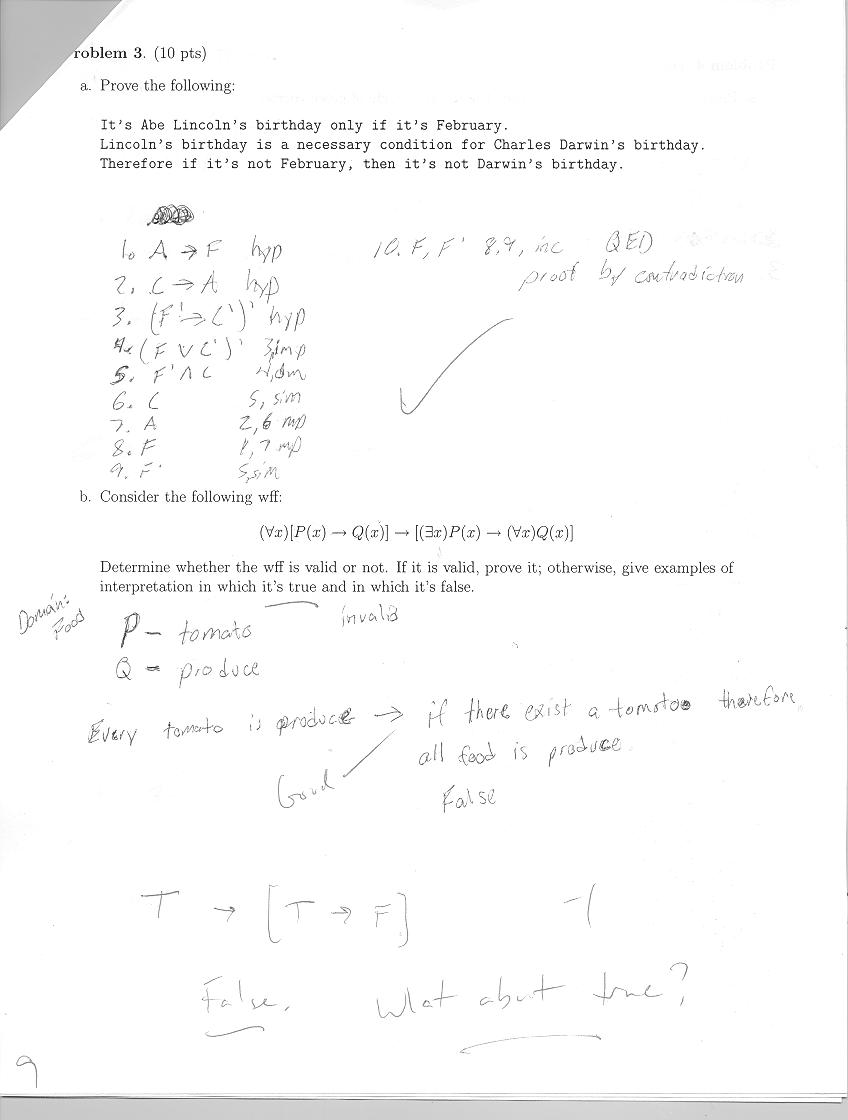 roblem 3. (10 pts)
a. Prove the following:
It's Abe Lincoln's birthday only if it's February.
Lincoln's birthday is a necessary condition for Charles Darwin's birthday.
Therefore if it's not February, then it's not Darwin's birthday.
1. A → F hyp
2. C → A hyp
3. (F' → C')' hyp
4. (F ∨ C')' 3, imp
5. F' ∧ C 4, dm
6. C 5, sim
7. A 2,6 mp
8. F 1,7 mp
9. F' 5, sim
10. F, F' 8,9, inc QED
proof by contradiction
b. Consider the following wff:
(∀x)[P(x) → Q(x)] → [(∃x)P(x) → (∀x)Q(x)]
Determine whether the wff is valid or not. If it is valid, prove it; otherwise, give examples of
interpretation in which it's true and in which it's false.
invalid
Domain:
Food
P - tomato
Q - produce
Every tomato is produce → if there exist a tomatoe therefore
all food is produce.
Good
False
T → [T → F] -1
False. What about true?
9